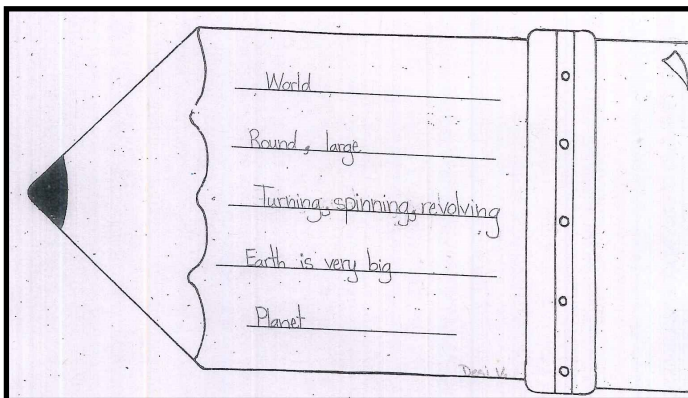 World
Round, large
Turning, spinning, revolving
Earth is very big
Planet